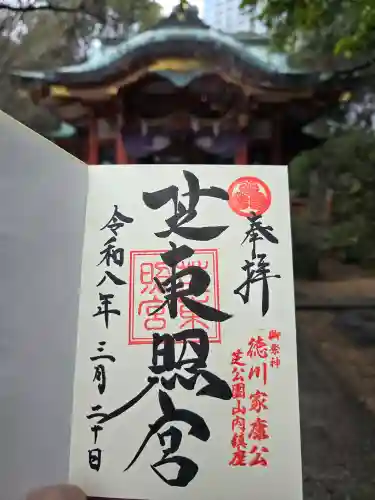 奉拝
御祭神
徳川家康公
芝公園山内鎮座
芝東照宮
芝東照宮
令和八年三月二十日